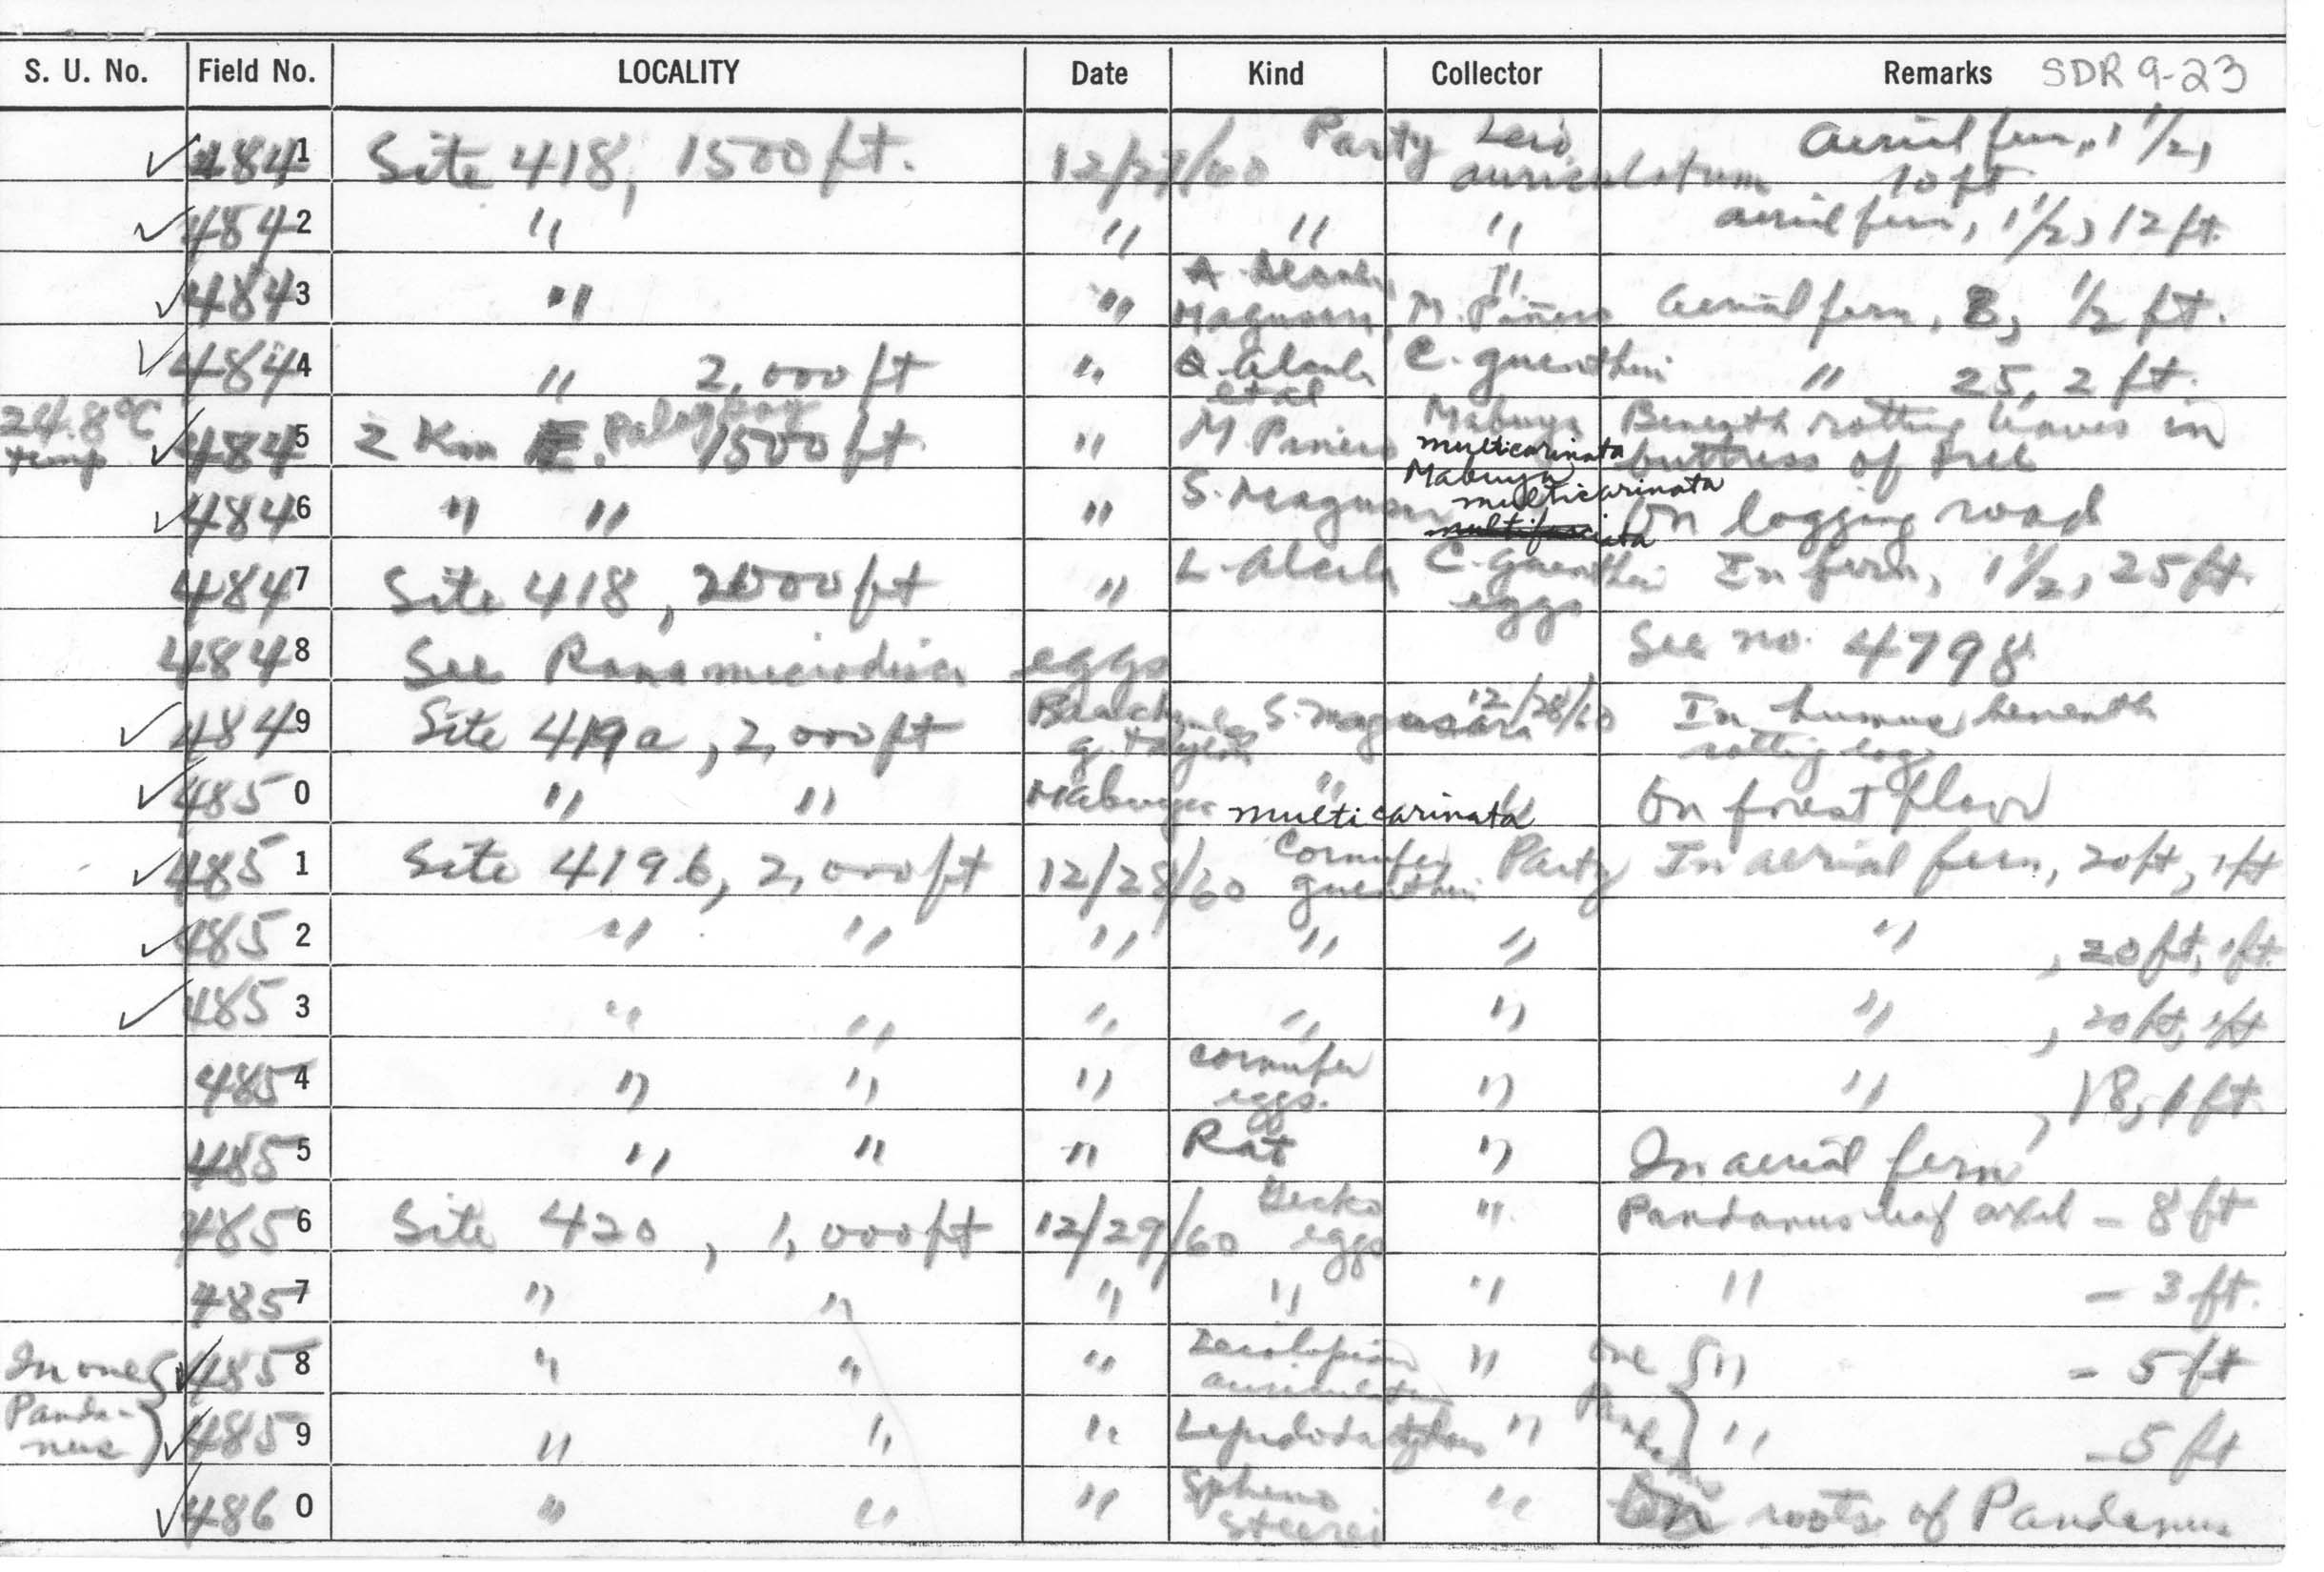 S. U. No. Field No. LOCALITY Date Kind Collector Remarks SDR 9-23
4841 Site 418, 1500 ft. 12/27/60 Party Leio. auriculatum Aerial fern, 1 1/2, 10 ft
4842 " " " " aerial fern, 1 1/2, 12 ft.
4843 " " Magusara, M. Piñero " Aerial fern, 8, 1/2 ft.
4844 " 2,000 ft " Alcala et al C. guentheri " 25, 2 ft.
24.8°C temp 4845 2 Km E. Palaypay 1500 ft. " M. Pinero Mabuya multicarinata Beneath rotting leaves in buttress of tree
4846 " " " S. Magusara Mabuya multicarinata multifasciata On logging road
4847 Site 418, 2000 ft " L. Alcala C. guentheri eggs In fern, 1 1/2, 25 ft.
4848 See Rana microdisca eggs See no. 4798
4849 Site 419a, 2,000 ft Brachymeles g. taylori S. Magusara 12/28/60 In humus beneath rotting log
4850 " " Mabuya multicarinata " " On forest floor
4851 Site 419b, 2,000 ft 12/28/60 Cornufer guentheri Party In aerial fern, 20 ft, 1 ft
4852 " " " " " " , 20 ft, 1 ft.
4853 " " " " " " , 20 ft, 1 ft
4854 " " " Cornufer eggs. " " , 18, 1 ft
4855 " " " Rat " In aerial fern
4856 Site 420, 1,000 ft 12/29/60 Gecko eggs " Pandanus leaf axil - 8 ft
4857 " " " " " " - 3 ft.
In one Panda-nus } 4858 " " " Leiolopisma auriculatum " one Panda { " - 5 ft
4859 " " " Lepidodactylus " } " - 5 ft
4860 " " " Spheno steerei " In roots of Pandanus